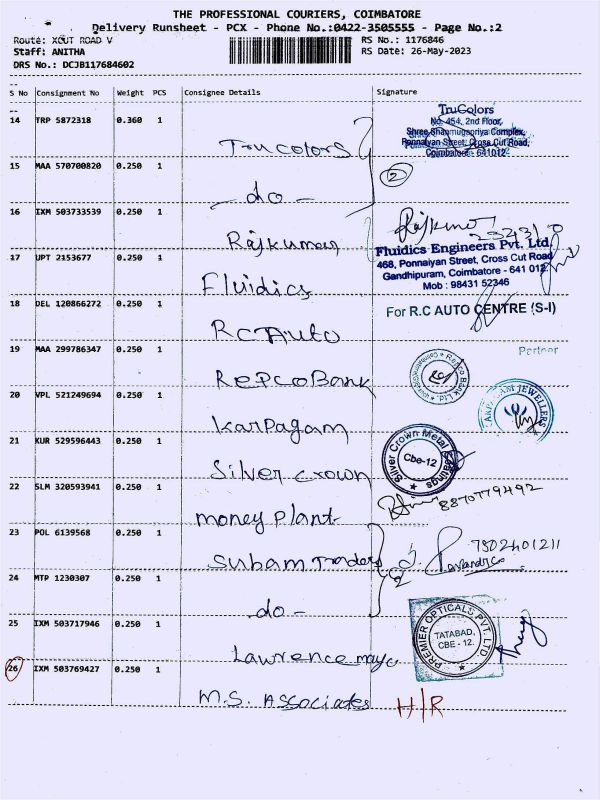 THE PROFESSIONAL COURIERS, COIMBATORE
Delivery Runsheet - PCX - Phone No.:0422-3505555 - Page No.:2
Route: XCUT ROAD V
RS No.: 1176846
Staff: ANITHA
RS Date: 26-May-2023
DRS No.: DCJB117684602
S No Consignment No Weight PCS Consignee Details Signature
14 TRP 5872318 0.360 1 Trucolors
TruColors
No. 454, 2nd Floor,
Shree Shanmugapriya Complex,
Ponnaiyan Street, Cross Cut Road,
Coimbatore - 641012
15 MAA 570700820 0.250 1 - do - 2
16 IXM 503733539 0.250 1 Rajkumar
Rajkumar
17 UPT 2153677 0.250 1 Fluidics
Fluidics Engineers Pvt. Ltd
468, Ponnaiyan Street, Cross Cut Road
Gandhipuram, Coimbatore - 641 012.
Mob : 98431 52346
18 DEL 120866272 0.250 1 RC Auto
For R.C AUTO CENTRE (S-I)
Partner
19 MAA 299786347 0.250 1 Repco Bank
Repco Bank Ltd.
20 VPL 521249694 0.250 1 Karpagam
KARPAGAM JEWELLERS
21 KUR 529596443 0.250 1 Silver crown
Silver Crown Metal
Cbe-12
22 SLM 320593941 0.250 1 money plant
8870779492
23 POL 6139568 0.250 1 Subam Traders
2
7502401211
24 MTP 1230307 0.250 1 - do -
25 IXM 503717946 0.250 1 Lawrence mayo
PREMIER OPTICALS PVT. LTD
TATABAD,
CBE - 12.
26 IXM 503769427 0.250 1 M.S. Associates H/R